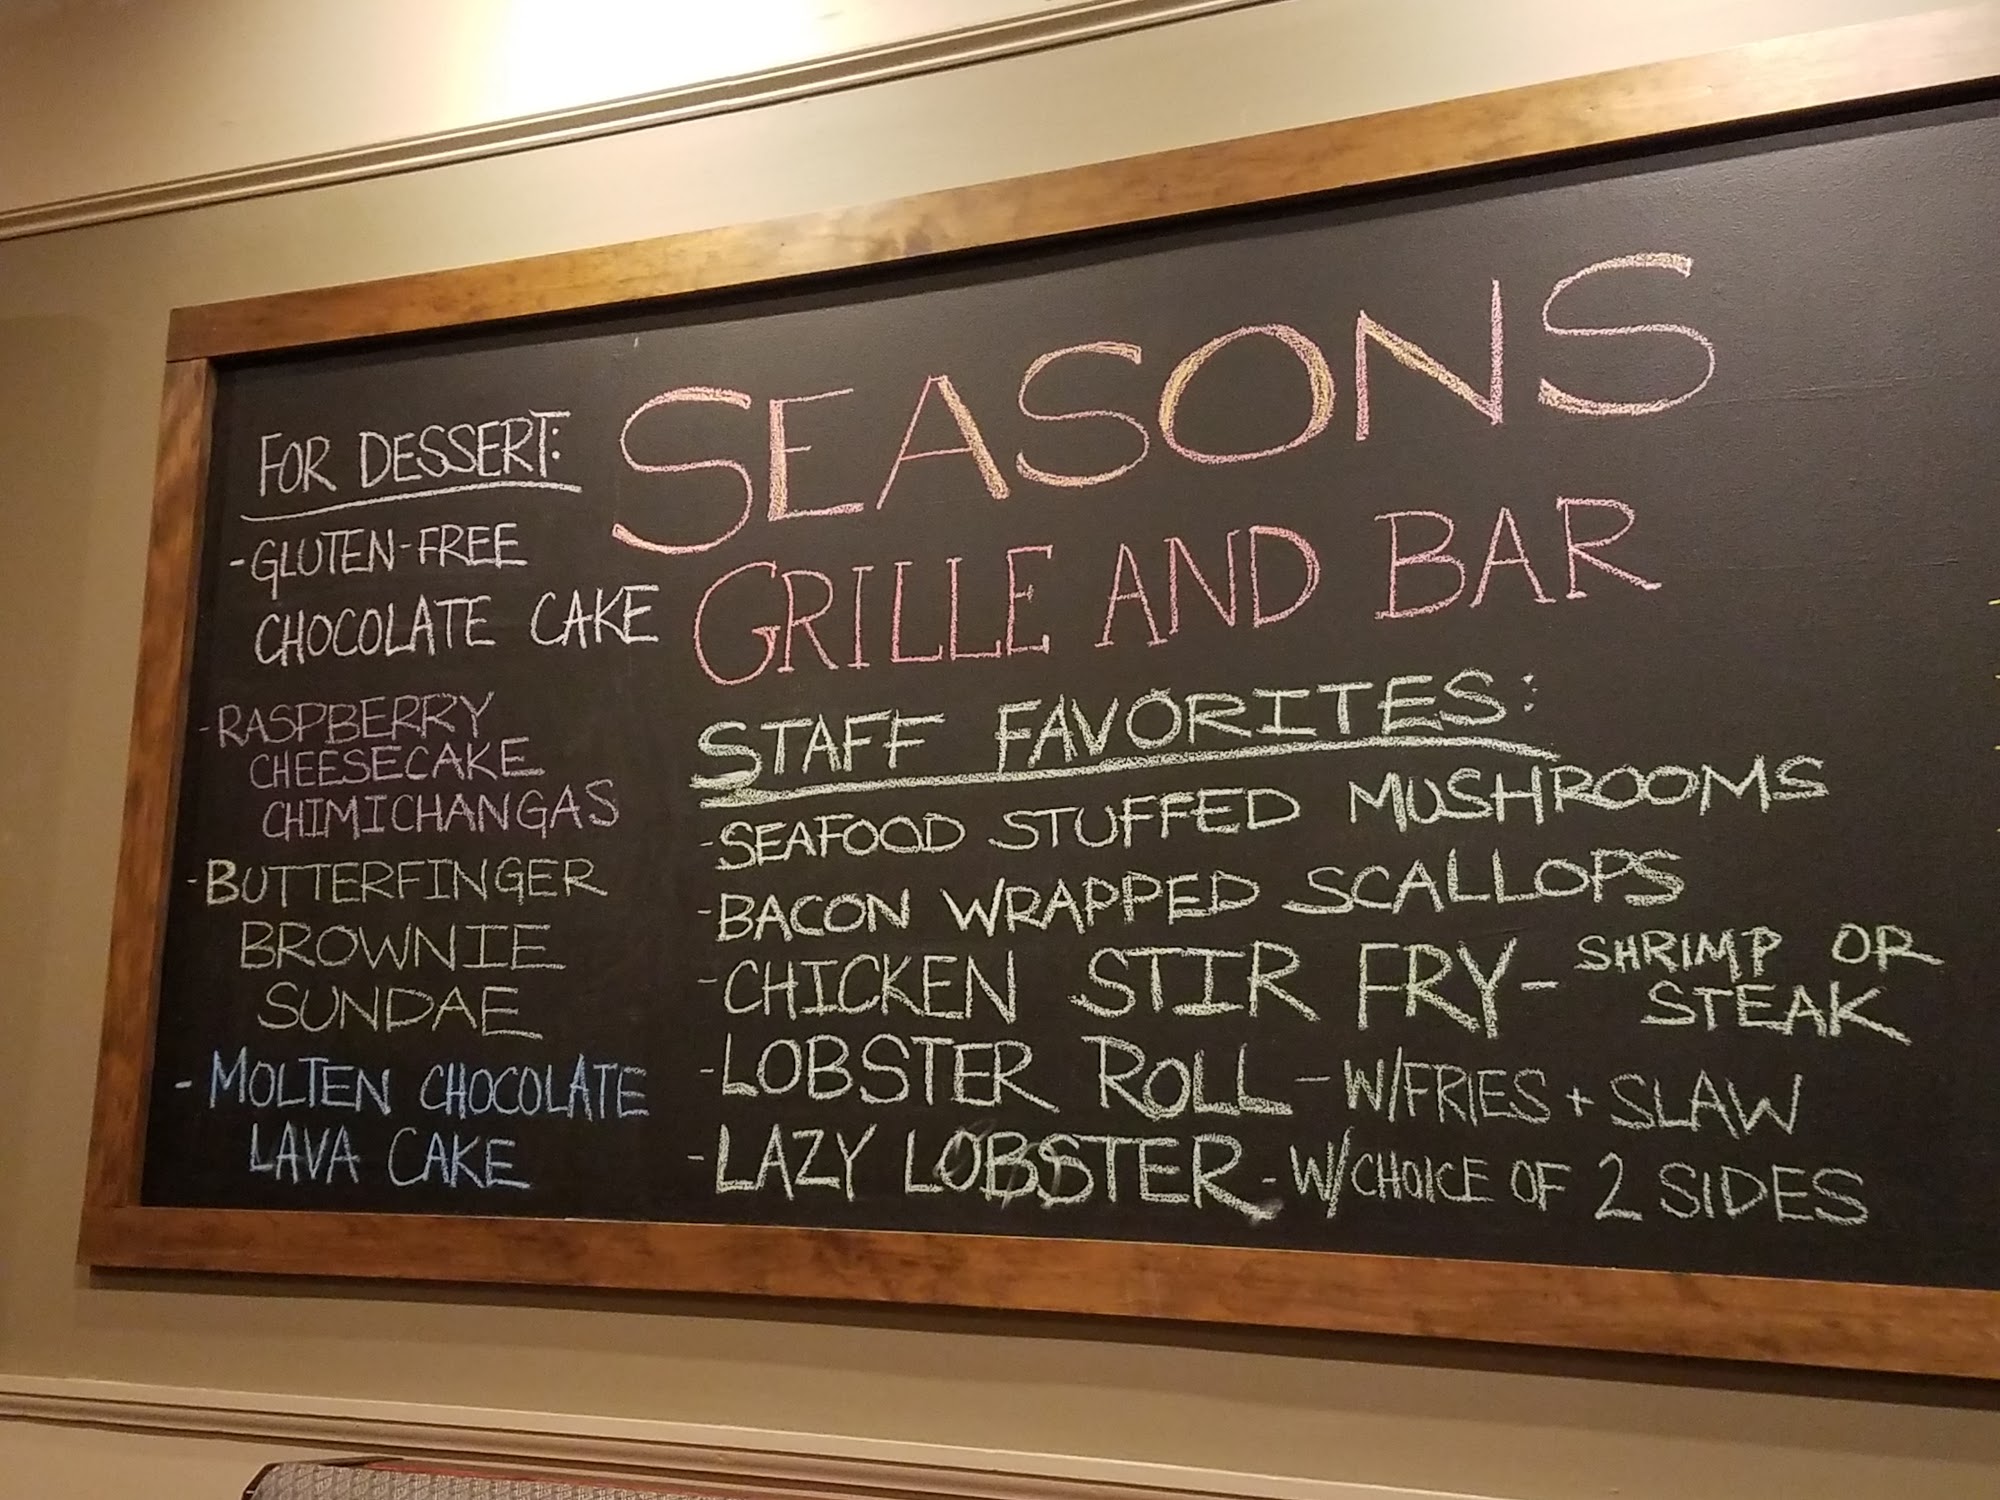 SEASONS
GRILLE AND BAR
FOR DESSERT:
-GLUTEN-FREE
CHOCOLATE CAKE
-RASPBERRY
CHEESECAKE
CHIMICHANGAS
-BUTTERFINGER
BROWNIE
SUNDAE
-MOLTEN CHOCOLATE
LAVA CAKE
STAFF FAVORITES:
-SEAFOOD STUFFED MUSHROOMS
-BACON WRAPPED SCALLOPS
-CHICKEN STIR FRY- SHRIMP OR
STEAK
-LOBSTER ROLL - W/FRIES + SLAW
-LAZY LOBSTER - W/CHOICE OF 2 SIDES